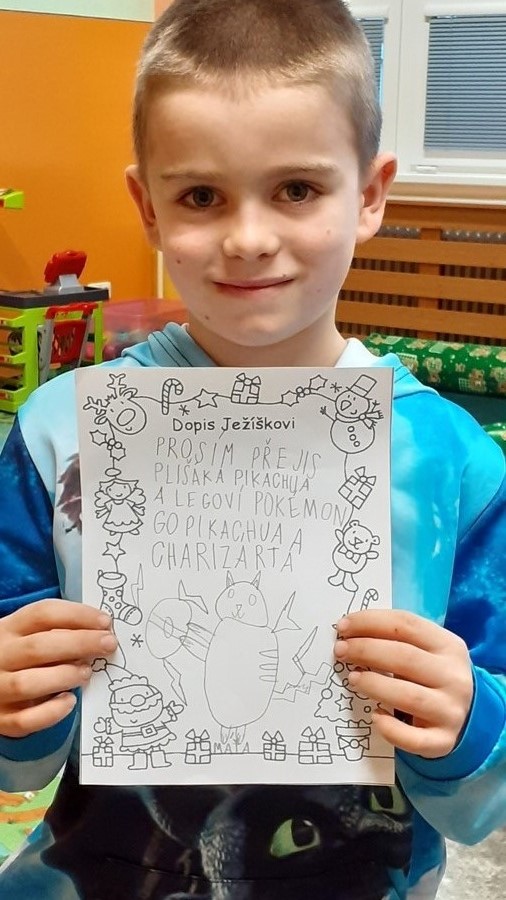 Dopis Ježíškovi
PROSÍM PŘEJIS
PLIŠÁKA PIKACHUA
A LEGOVÍ POKÉMON
GO PIKACHUA A
CHARIZARTA
MAŤA